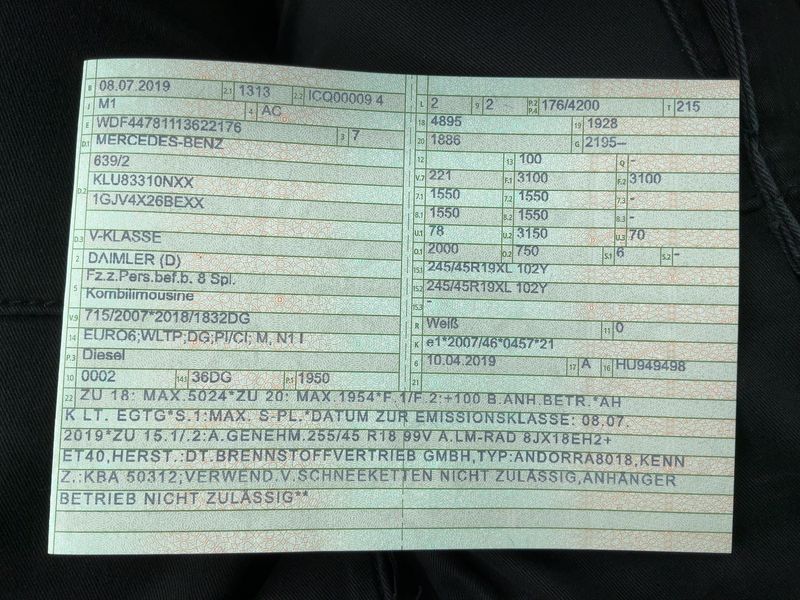 B 08.07.2019 2.1 1313 2.2 ICQ00009 4
J M1 4 AC
E WDF44781113622176 3 7
D.1 MERCEDES-BENZ
639/2
D.2 KLU83310NXX
1GJV4X26BEXX
D.3 V-KLASSE
2 DAIMLER (D)
5 Fz.z.Pers.bef.b. 8 Spl.
Kombilimousine
V.9 715/2007*2018/1832DG
14 EURO6;WLTP;DG;PI/CI; M, N1 I
P.3 Diesel
10 0002 14.1 36DG P.1 1950
L 2 9 2 P.2 P.4 176/4200 T 215
18 4895 19 1928
20 1886 G 2195--
12 13 100 Q -
V.7 221 F.1 3100 F.2 3100
7.1 1550 7.2 1550 7.3 -
8.1 1550 8.2 1550 8.3 -
U.1 78 U.2 3150 U.3 70
O.1 2000 O.2 750 S.1 6 S.2 -
15.1 245/45R19XL 102Y
15.2 245/45R19XL 102Y
15.3 -
R Weiß 11 0
K e1*2007/46*0457*21
6 10.04.2019 17 A 16 HU949498
21
22 ZU 18: MAX.5024*ZU 20: MAX.1954*F.1/F.2:+100 B.ANH.BETR.*AH
K LT. EGTG*S.1:MAX. S-PL.*DATUM ZUR EMISSIONSKLASSE: 08.07.
2019*ZU 15.1/.2:A.GENEHM.255/45 R18 99V A.LM-RAD 8JX18EH2+
ET40,HERST.:DT.BRENNSTOFFVERTRIEB GMBH,TYP:ANDORRA8018,KENN
Z.:KBA 50312;VERWEND.V.SCHNEEKETTEN NICHT ZULÄSSIG,ANHÄNGER
BETRIEB NICHT ZULÄSSIG**